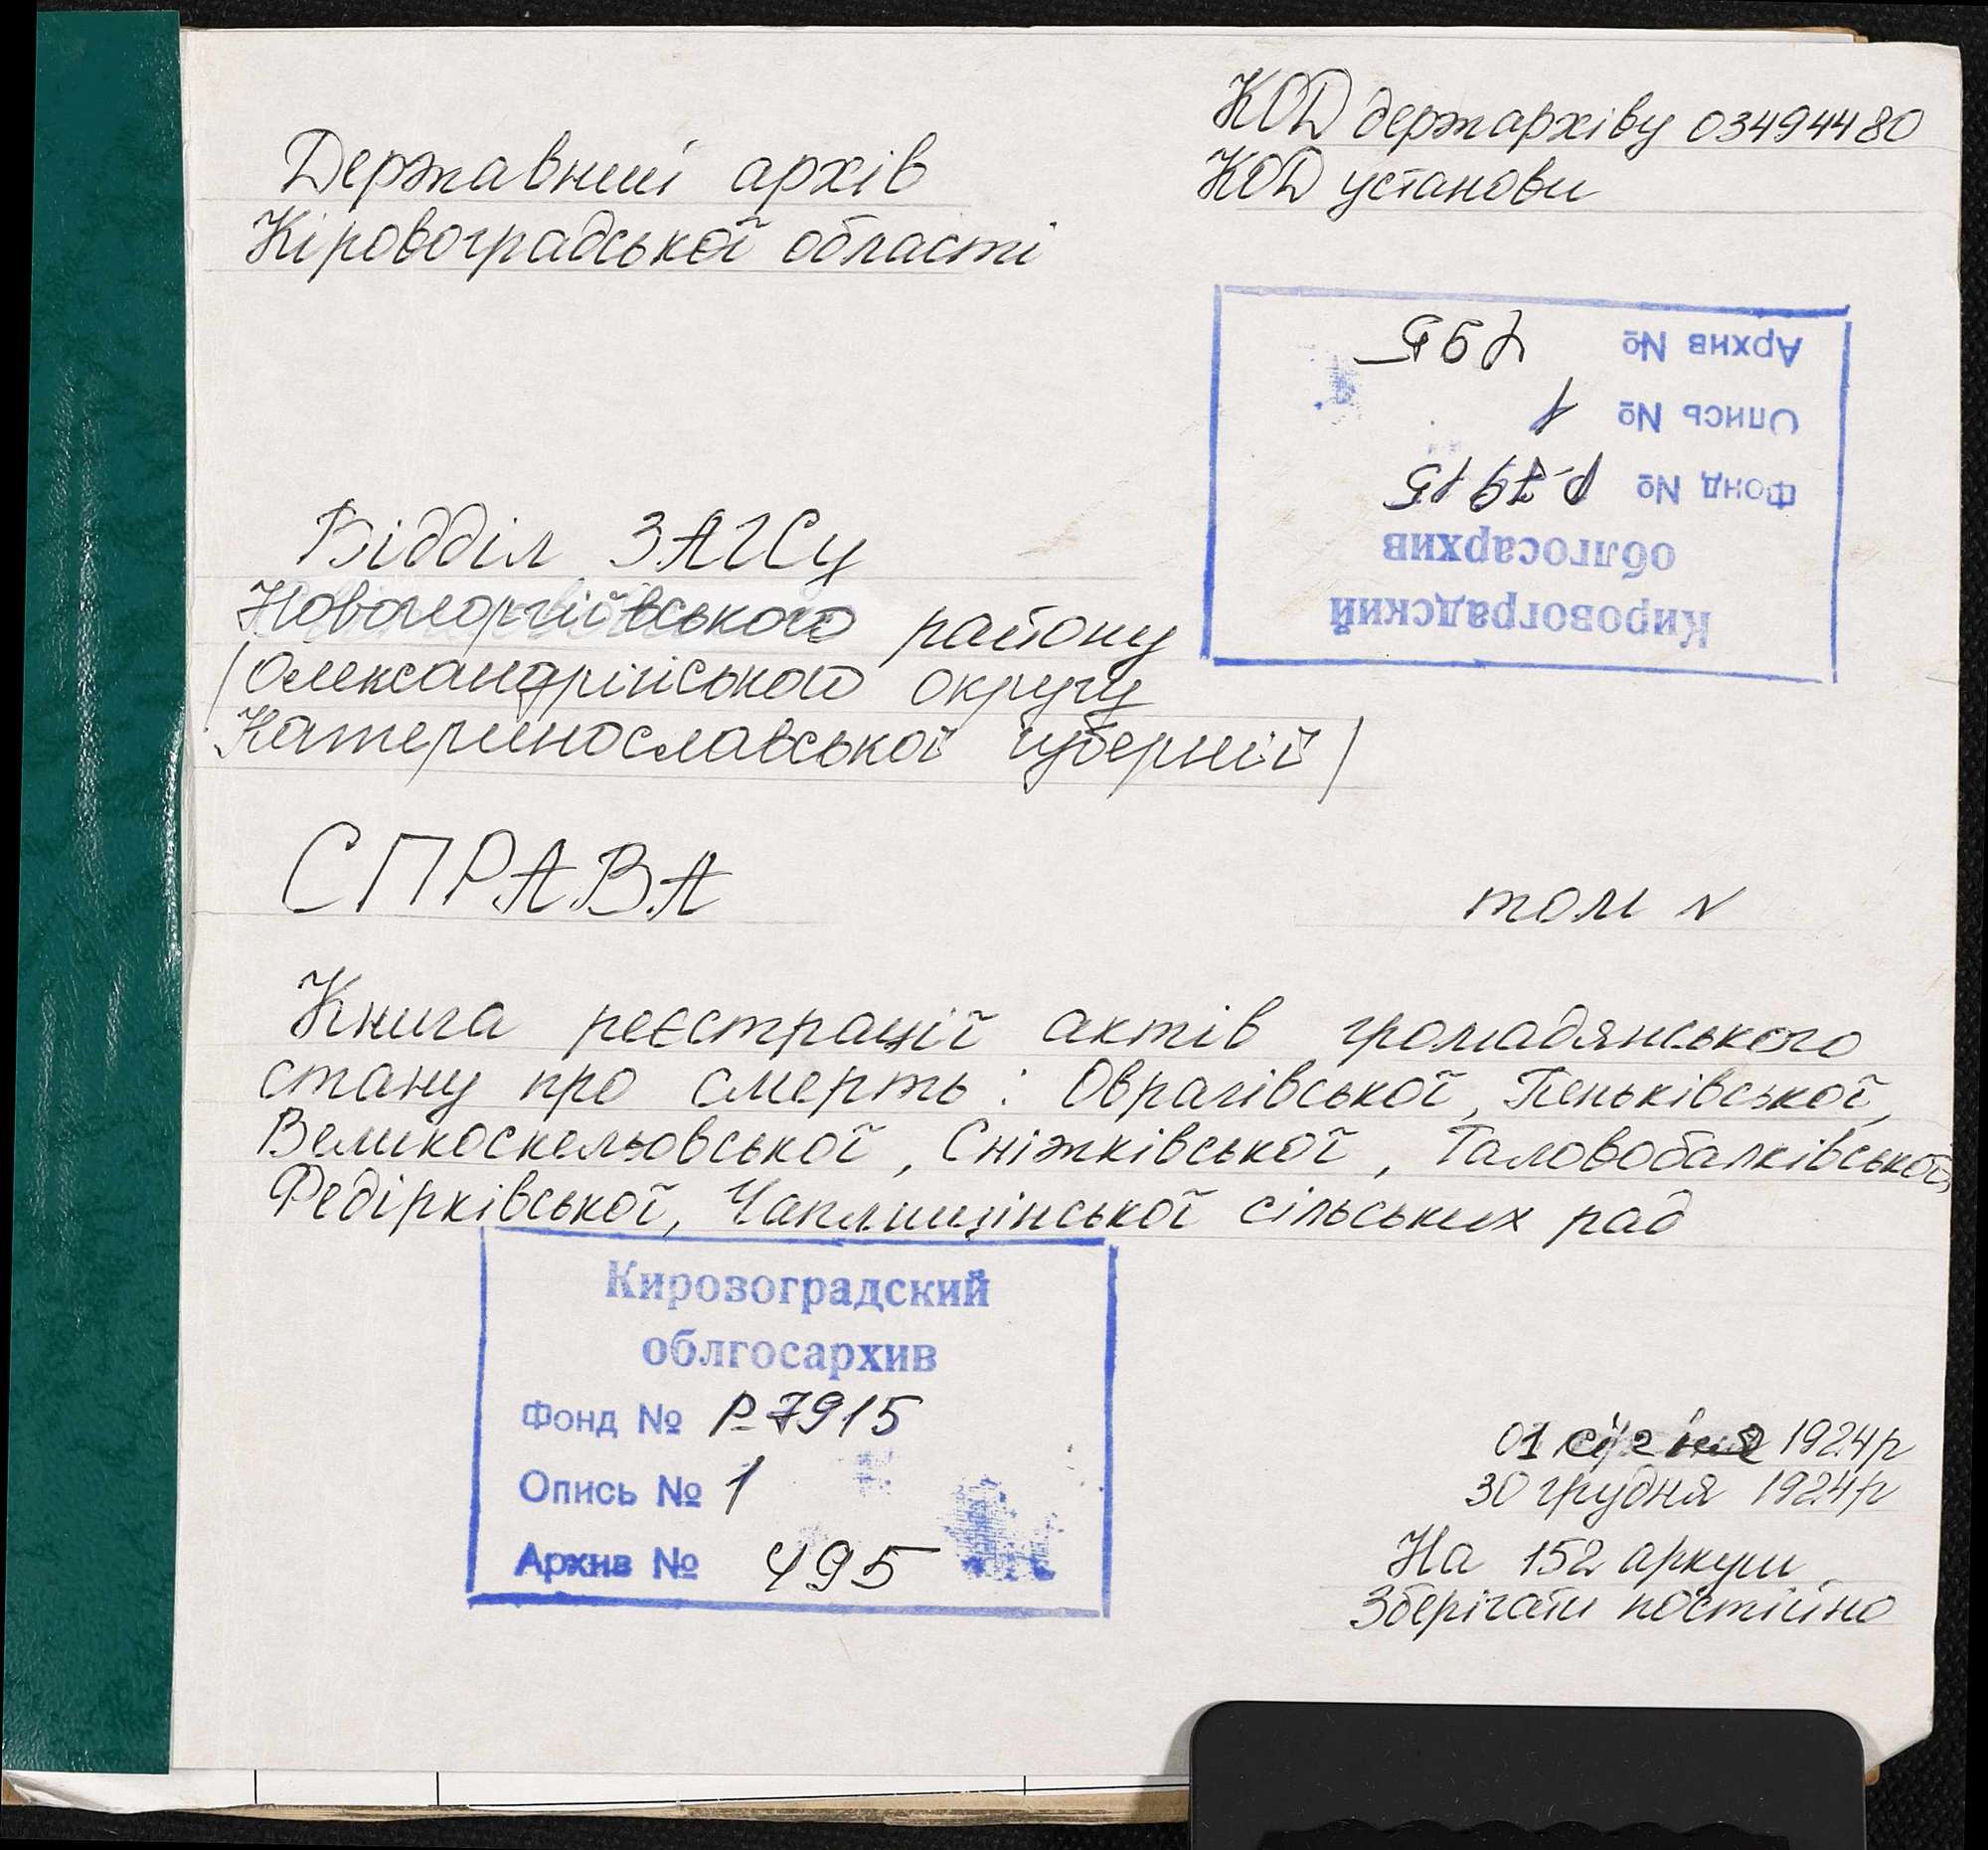 КОД держархіву 03494480
КОД установи
Державний архів
Кіровоградської області
Кировоградский
облгосархив
Фонд № Р-7915
Опись № 1
Архив № 495
Відділ ЗАГСу
Новогеоргіївського району
/Олександрійського округу
Катеринославської губернії/
СПРАВА
том №
Книга реєстрації актів громадянського
стану про смерть: Оврагівської, Пеньківської,
Великоскельовської, Сніжківської, Таловобалківської,
Федірківської, Чаплищінської сільських рад
Кировоградский
облгосархив
Фонд № Р-7915
Опись № 1
Архив № 495
01 січня 1924р
30 грудня 1924р
На 152 аркуш
Зберігати постійно